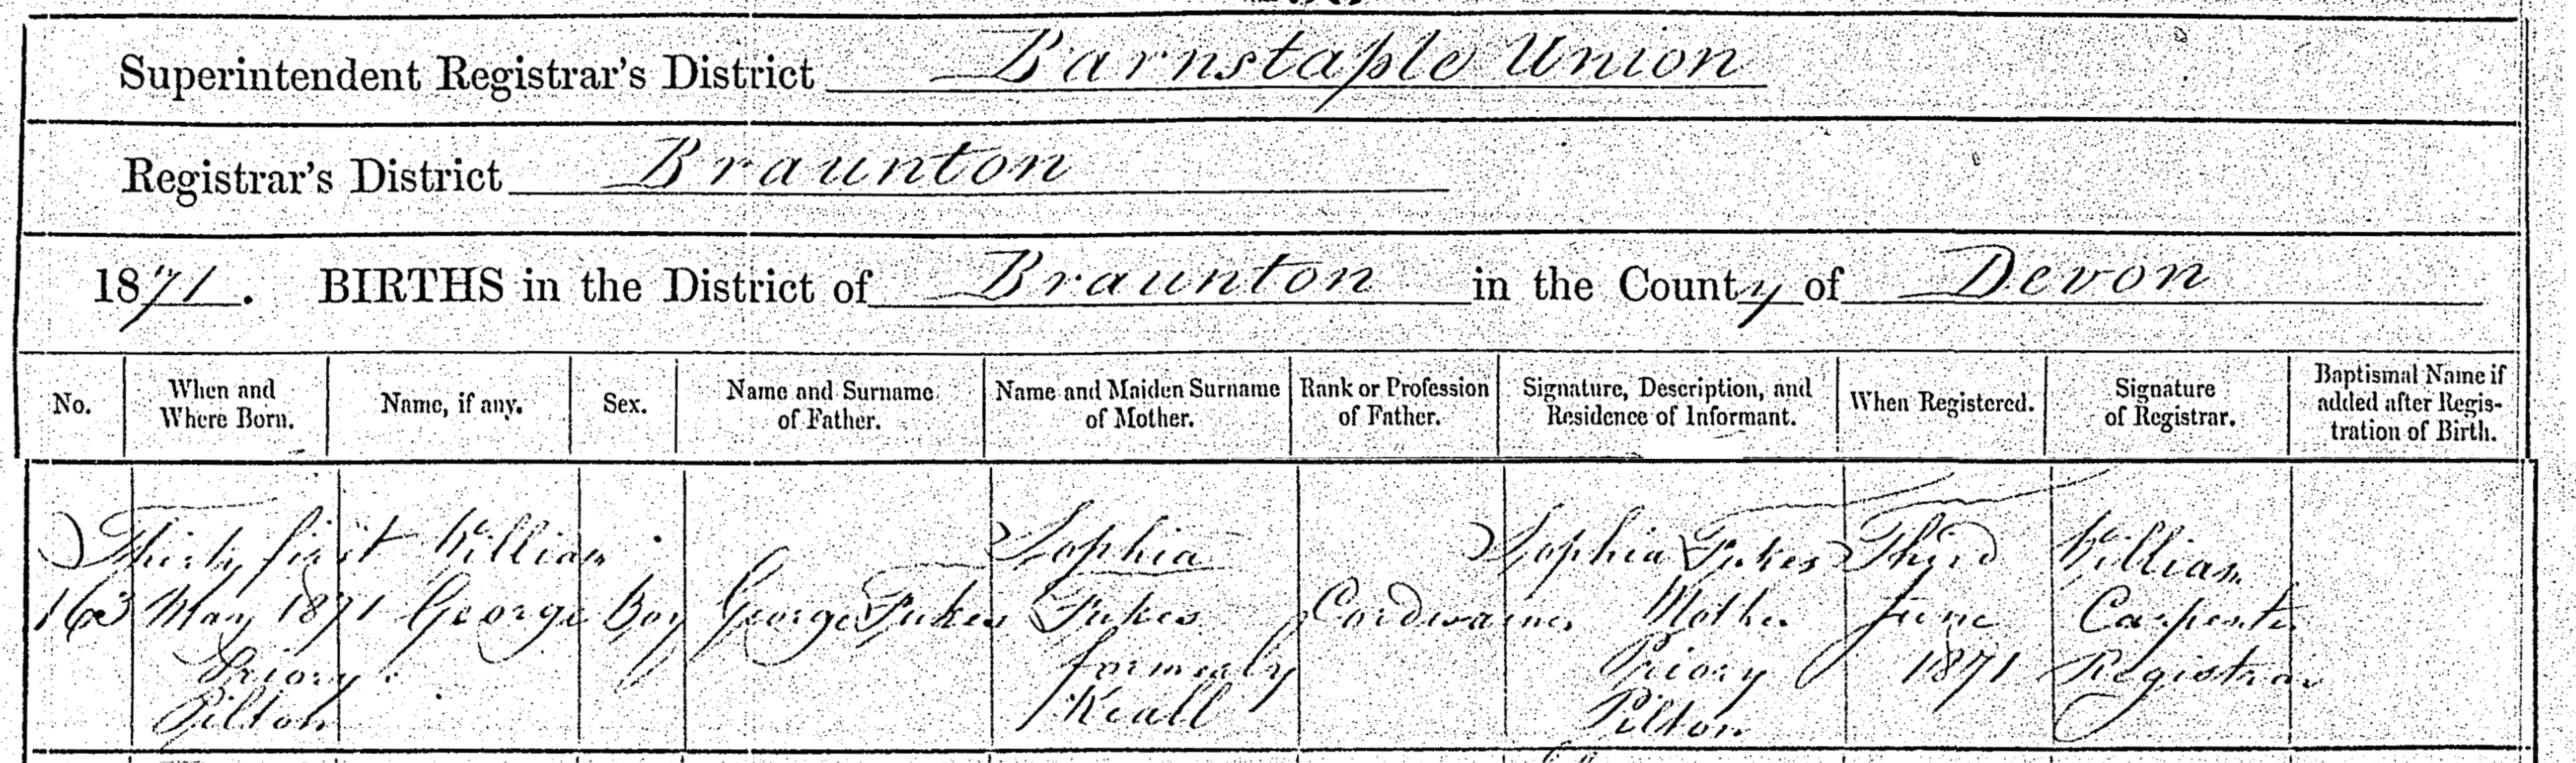 Superintendent Registrar's District Barnstaple Union
Registrar's District Braunton
1871. BIRTHS in the District of Braunton in the County of Devon
No.
When and
Where Born.
Name, if any.
Sex.
Name and Surname
of Father.
Name and Maiden Surname
of Mother.
Rank or Profession
of Father.
Signature, Description, and
Residence of Informant.
When Registered.
Signature
of Registrar.
Baptismal Name if
added after Regis-
tration of Birth.
163
Thirty first
May 1871
Priory
Pilton
William
George
Boy
George Fukes
Sophia
Fukes
formerly
Keall
Cordwainer
Sophia Fukes
Mother
Priory
Pilton
Third
June
1871
William
Carpenter
Registrar